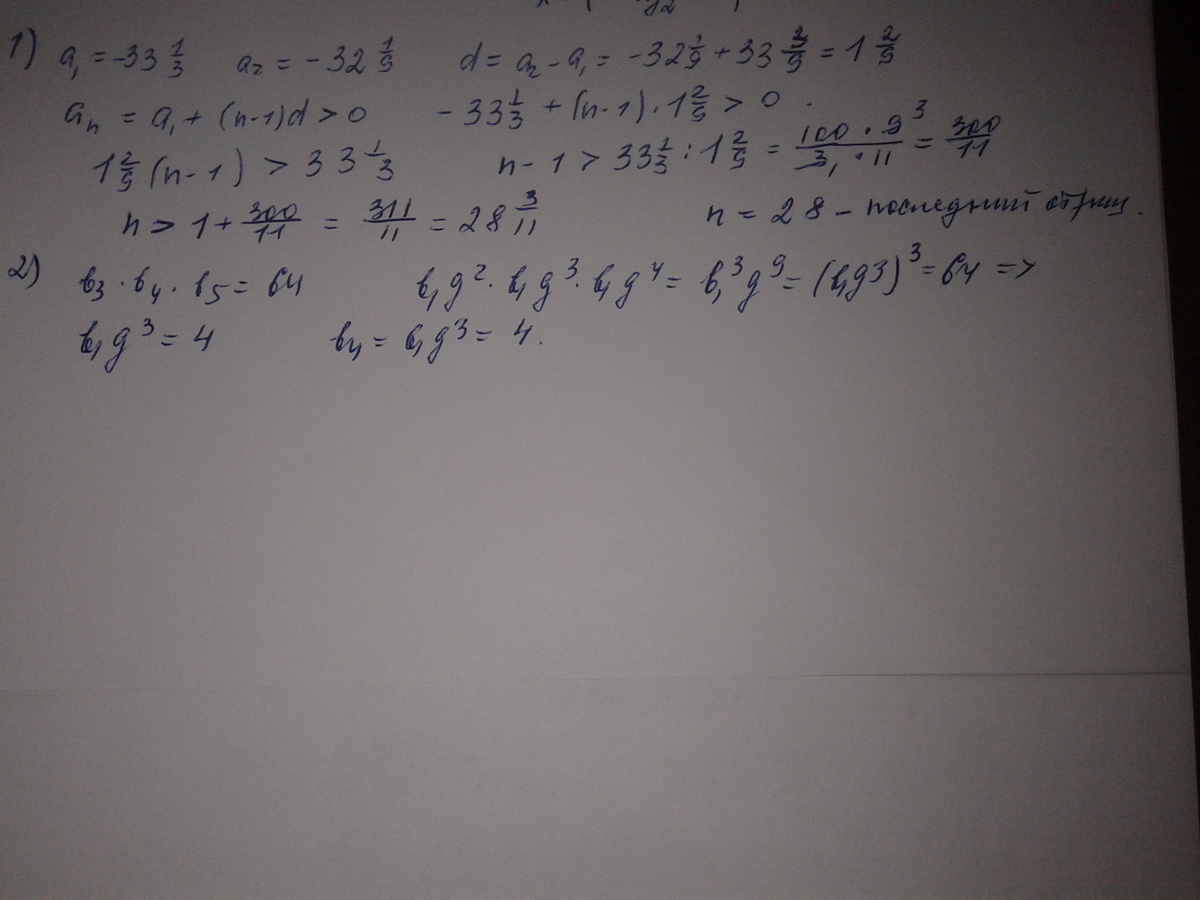 1) a₁ = -33 1/3 a₂ = -32 1/9 d = a₂ - a₁ = -32 1/9 + 33 3/9 = 1 2/9
aₙ = a₁ + (n-1)d > 0 -33 1/3 + (n-1) · 1 2/9 > 0.
1 2/9 (n-1) > 33 1/3 n-1 > 33 1/3 : 1 2/9 = 100 · 9³/3₁ · 11 = 300/11
n > 1 + 300/11 = 311/11 = 28 3/11 n = 28 - последний отриц.
2) b₃ · b₄ · b₅ = 64 b₁g² · b₁g³ · b₁g⁴ = b₁³g⁹ = (b₁g³)³ = 64 =>
b₁g³ = 4 b₄ = b₁g³ = 4.